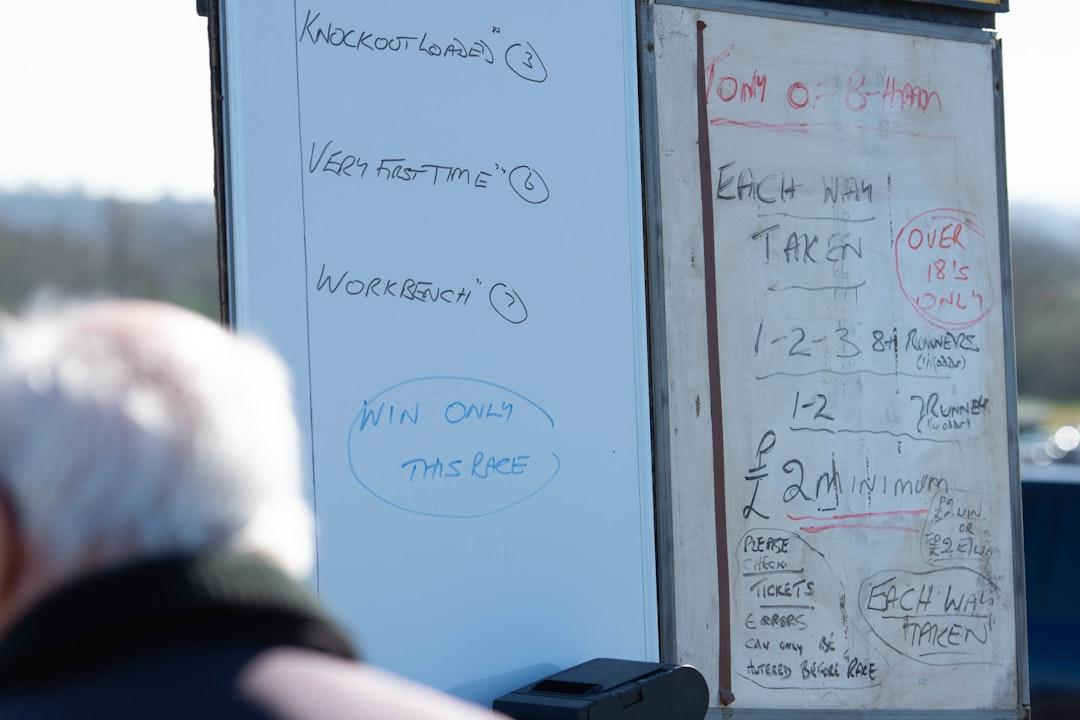 KNOCKOUT LOADED" 3
VERY FIRST TIME" 6
WORKBENCH" 7
WIN ONLY
THIS RACE
TONY OF B-HAM
EACH WAY
TAKEN
OVER
18'S
ONLY
1-2-3 8+ RUNNERS
1-2 7 RUNNER
£2 MINIMUM
WIN
OR
£2 E/W
PLEASE
CHECK
TICKETS
ERRORS
CAN ONLY BE
ALTERED BEFORE RACE
EACH WAY
TAKEN